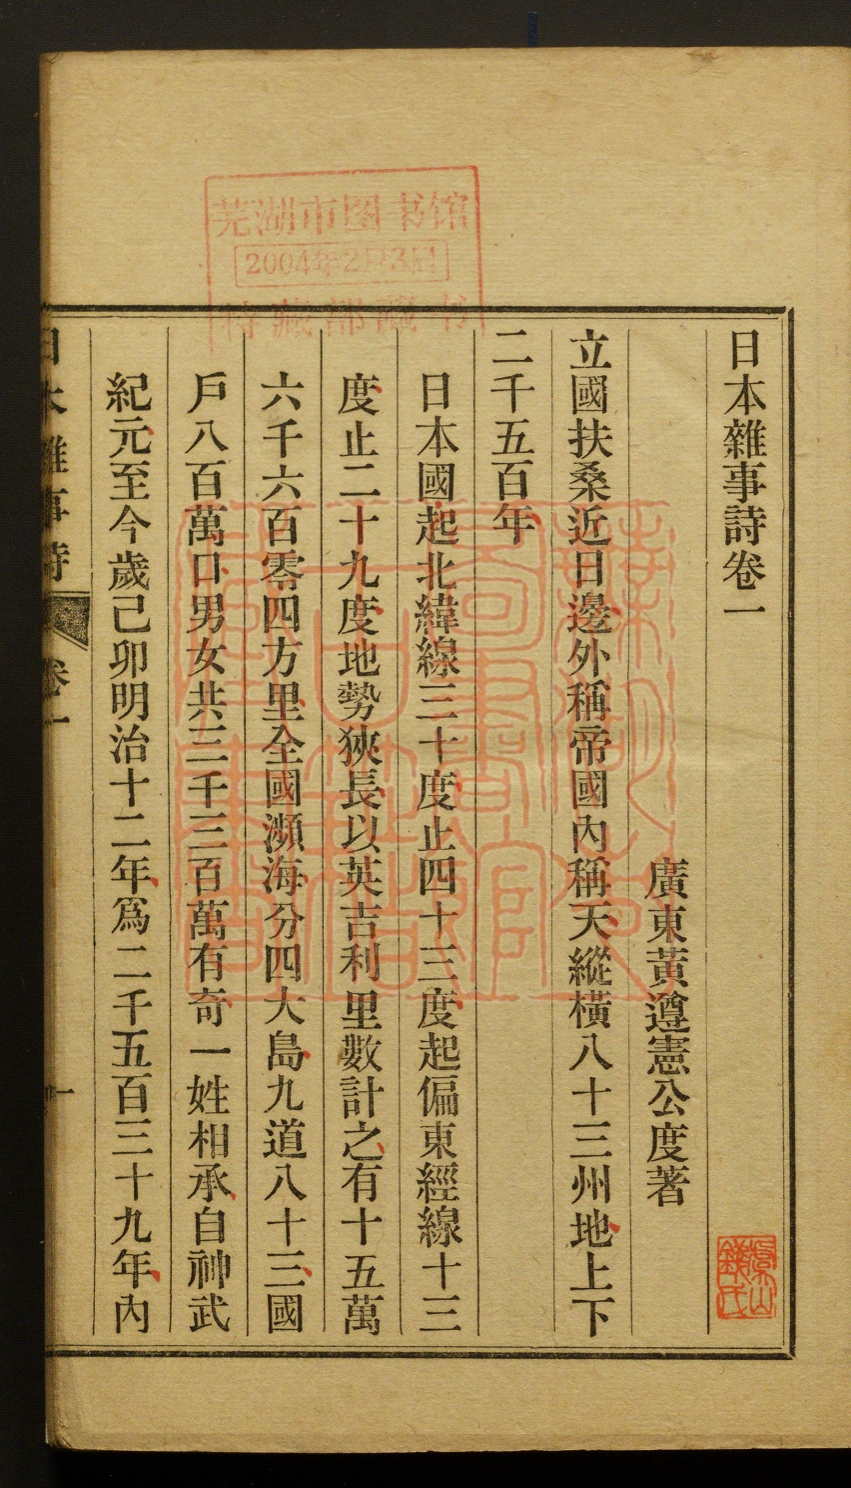 日本雜事詩卷一
廣東黃遵憲公度著
立國扶桑近日邊外稱帝國內稱天縱橫八十三州地上下
二千五百年
日本國起北緯線三十度止四十三度起偏東經線十三
度止二十九度地勢狹長以英吉利里數計之有十五萬
六千六百零四方里全國瀕海分四大島九道八十三國
戶八百萬口男女共三千三百萬有奇一姓相承自神武
紀元至今歲己卯明治十二年爲二千五百三十九年內
日本雜事詩 卷一 一
芜湖市图书馆
2004年2月3日
特藏部藏书